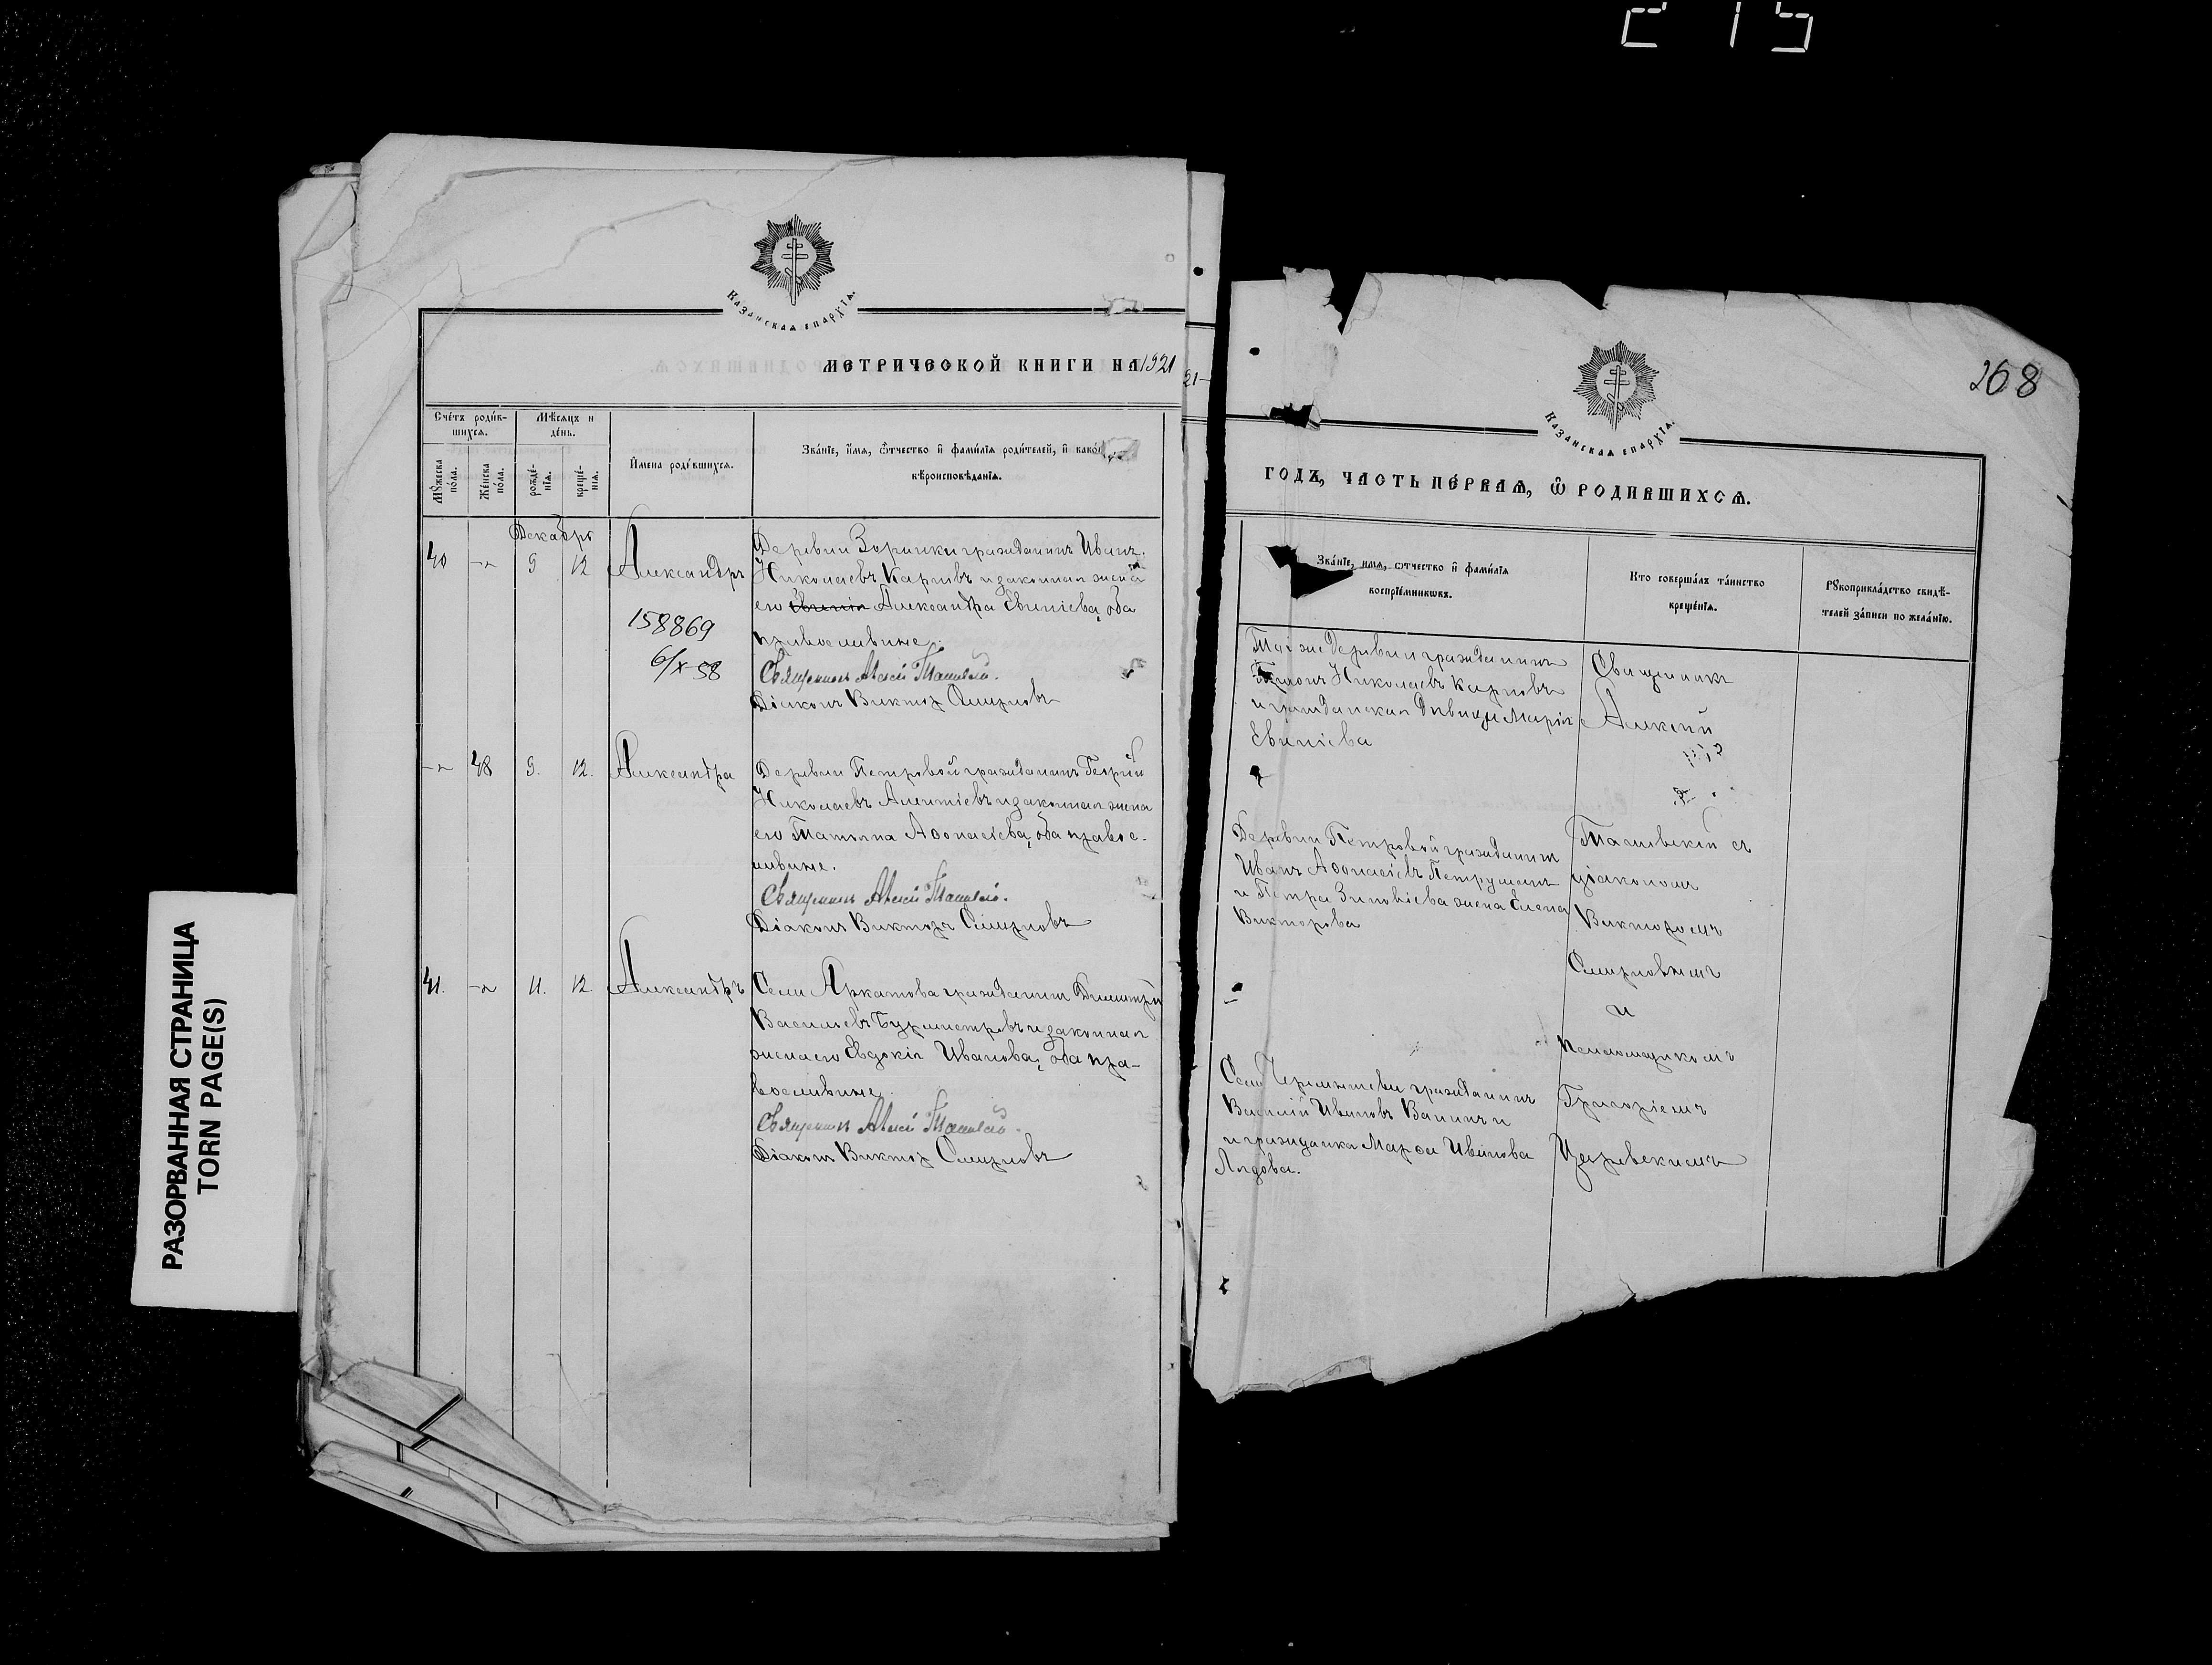 215
КАЗАНСКАЯ ЕПАРХІЯ.
МЕТРИЧЕСКОЙ КНИГИ НА 1921
Счетъ родившихся.
Мѣсяцъ и день.
Мужеска пола.
Женска пола.
рожденія.
крещенія.
Имена родившихся.
Званіе, имя, отчество и фамилія родителей, и какого
вѣроисповѣданія.
Декабрь
40 -"- 9 12 Александръ
158869
6/X-58
Деревни гражданинъ Иванъ
Николаевъ Карповъ и законная жена
его Александра Евгніева, оба
православные.
Священникъ Алексій
Діаконъ Викторъ Смирновъ
-"- 48 9. 12. Александра
Деревни Петровой гражданинъ Георгій
Николаевъ и законная жена
его Татьяна Аѳонасіева, оба правос-
лавные.
Священникъ Алексій
Діаконъ Викторъ Смирновъ
41. -"- 11. 12 Александръ
Села Аркатова гражданинъ Димитрій
Васильевъ Бурмистровъ и законная
жена его Евдокія Иванова, оба пра-
вославные
Священникъ Алексій
Діаконъ Викторъ Смирновъ
21
268
КАЗАНСКАЯ ЕПАРХІЯ.
ГОДЪ, ЧАСТЬ ПЕРВАЯ, Ѡ РОДИВШИХСЯ.
Званіе, имя, отчество и фамилія
воспріемниковъ.
Кто совершалъ таинство
крещенія.
Рукоприкладство свидѣ-
телей записи по желанію.
Той же деревни гражданинъ
Николаевъ Карповъ
и гражданская дѣвица Марія
Евгніева
Деревни Петровой гражданинъ
Иванъ Аѳонасіевъ
и Петра Зиновіева жена Елена
Викторова
Села гражданинъ
Василій Ивановъ Ванинъ и
и гражданка Марѳа Иванова
Лядова.
Священникъ
Алексій
съ
діакономъ
Викторомъ
Смирновымъ
и
псаломщикомъ
Григоріемъ
Царевскимъ
РАЗОРВАННАЯ СТРАНИЦА
TORN PAGE(S)